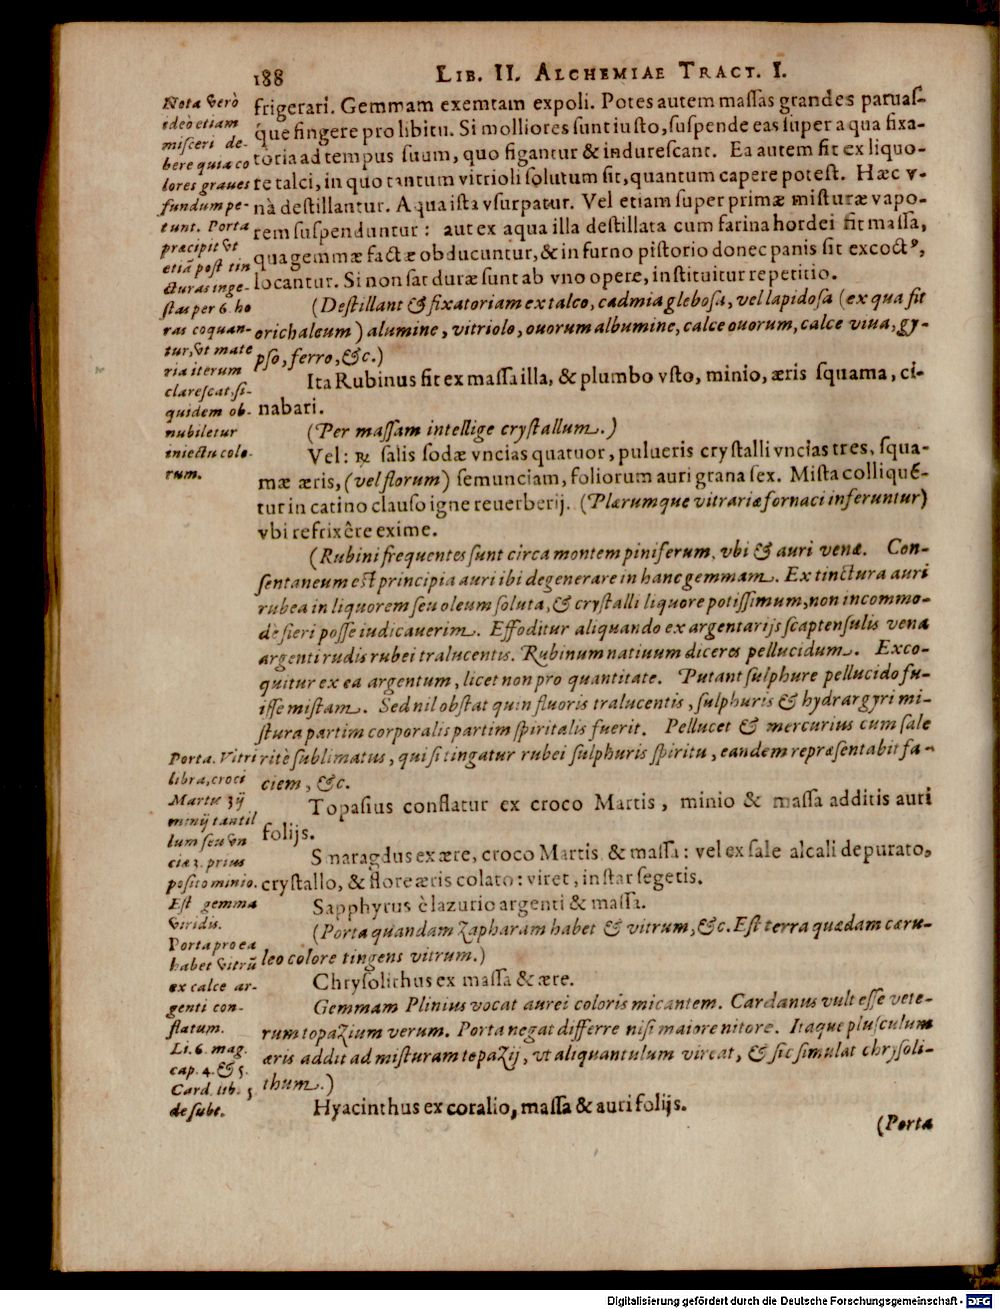 188
LIB. II. ALCHEMIAE TRACT. I.
frigerari. Gemmam exemtam expoli. Potes autem maſſas grandes paruaſ-
que fingere pro libitu. Si molliores ſunt iuſto, ſuſpende eas ſuper aqua fixa-
toria ad tempus ſuum, quo figantur & indureſcant. Ea autem fit ex liquo-
re talci, in quo tantum vitrioli ſolutum ſit, quantum capere poteſt. Hæc v-
nà deſtillantur. Aqua iſta vſurpatur. Vel etiam ſuper primæ miſturæ vapo-
rem ſuſpenduntur: aut ex aqua illa deſtillata cum farina hordei fit maſſa,
qua gemmæ factæ obducuntur, & in furno piſtorio donec panis ſit excoctꝰ,
locantur. Si non ſat duræ ſunt ab vno opere, inſtituitur repetitio.
(Deſtillant & fixatoriam ex talco, cadmia gleboſa, vel lapidoſa (ex qua fit
orichalcum) alumine, vitriolo, ouorum albumine, calce ouorum, calce viua, gy-
pſo, ferro, &c.)
Ita Rubinus fit ex maſſa illa, & plumbo vſto, minio, æris ſquama, ci-
nabari.
(Per maſſam intellige cryſtallum.)
Vel: ℞ ſalis ſodæ vncias quatuor, pulueris cryſtalli vncias tres, ſqua-
mæ æris, (vel florum) ſemunciam, foliorum auri grana ſex. Miſta colliquē-
tur in catino clauſo igne reuerberij. (Plærumque vitrariæ fornaci inferuntur)
vbi refrixêre exime.
(Rubini frequentes ſunt circa montem piniferum, vbi & auri venæ. Con-
ſentaneum eſt principia auri ibi degenerare in hanc gemmam. Ex tinctura auri
rubea in liquorem ſeu oleum ſoluta, & cryſtalli liquore potiſſimum, non incommo-
dè fieri poſſe iudicauerim. Effoditur aliquando ex argentarijs ſcaptenſulis vena
argenti rudis rubei tralucentis. Rubinum natiuum diceres pellucidum. Exco-
quitur ex ea argentum, licet non pro quantitate. Putant ſulphure pellucido fu-
iſſe miſtam. Sed nil obſtat quin fluoris tralucentis, ſulphuris & hydrargyri mi-
ſtura partim corporalis partim ſpiritalis fuerit. Pellucet & mercurius cum ſale
ritè ſublimatus, qui ſi tingatur rubei ſulphuris ſpiritu, eandem repræſentabit fa-
ciem, &c.
Topaſius conflatur ex croco Martis, minio & maſſa additis auri
folijs.
Smaragdus ex ære, croco Martis & maſſa: vel ex ſale alcali depurato,
cryſtallo, & flore æris colato: viret, inſtar ſegetis.
Sapphyrus è lazurio argenti & maſſa.
(Porta quandam Zapharam habet & vitrum, &c. Eſt terra quædam cæru-
leo colore tingens vitrum.)
Chryſolithus ex maſſa & ære.
Gemmam Plinius vocat aurei coloris micantem. Cardanus vult eſſe vete-
rum topaZium verum. Porta negat differre niſi maiore nitore. Itaque pluſculum
æris addit ad miſturam topaZij, vt aliquantulum vireat, & ſic ſimulat chryſoli-
thum.)
Hyacinthus ex coralio, maſſa & auri folijs.
(Porta
Nota verò
ideò etiam
miſceri de-
bere quia co
lores graues
fundum pe-
tunt. Porta
præcipit vt
etiā poſt tin
cturas inge-
ſtas per 6. ho
ras coquan-
tur, vt mate
ria iterum
clareſcat, ſi-
quidem ob-
nubiletur
iniectu colo-
rum.
Porta. Vitri
libra, croci
Martis ʒij
minij tantil
lum ſeu vn
cia 3. prius
poſito minio.
Eſt gemma
viridis.
Porta pro ea
habet vitrū
ex calce ar-
genti con-
flatum.
Li. 6. mag.
cap. 4. & 5.
Card. lib. 5
de ſubt.
Digitalisierung gefördert durch die Deutsche Forschungsgemeinschaft - DFG